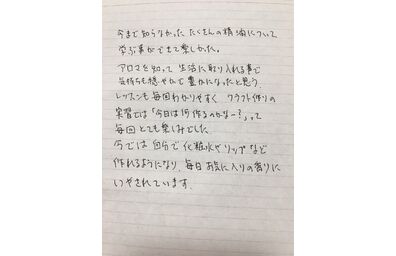 今まで知らなかった たくさんの精油について
学ぶ事ができて楽しかった。
アロマを知って 生活に取り入れる事で
気持ちも穏やかで豊かになったと思う。
レッスンも毎回わかりやすく クラフト作りの
実習では「今日は何作るのかなー？」って
毎回とても楽しみでした。
今では 自分で 化粧水やリップなど
作れるようになり、毎日お気に入りの香りに
いやされています。